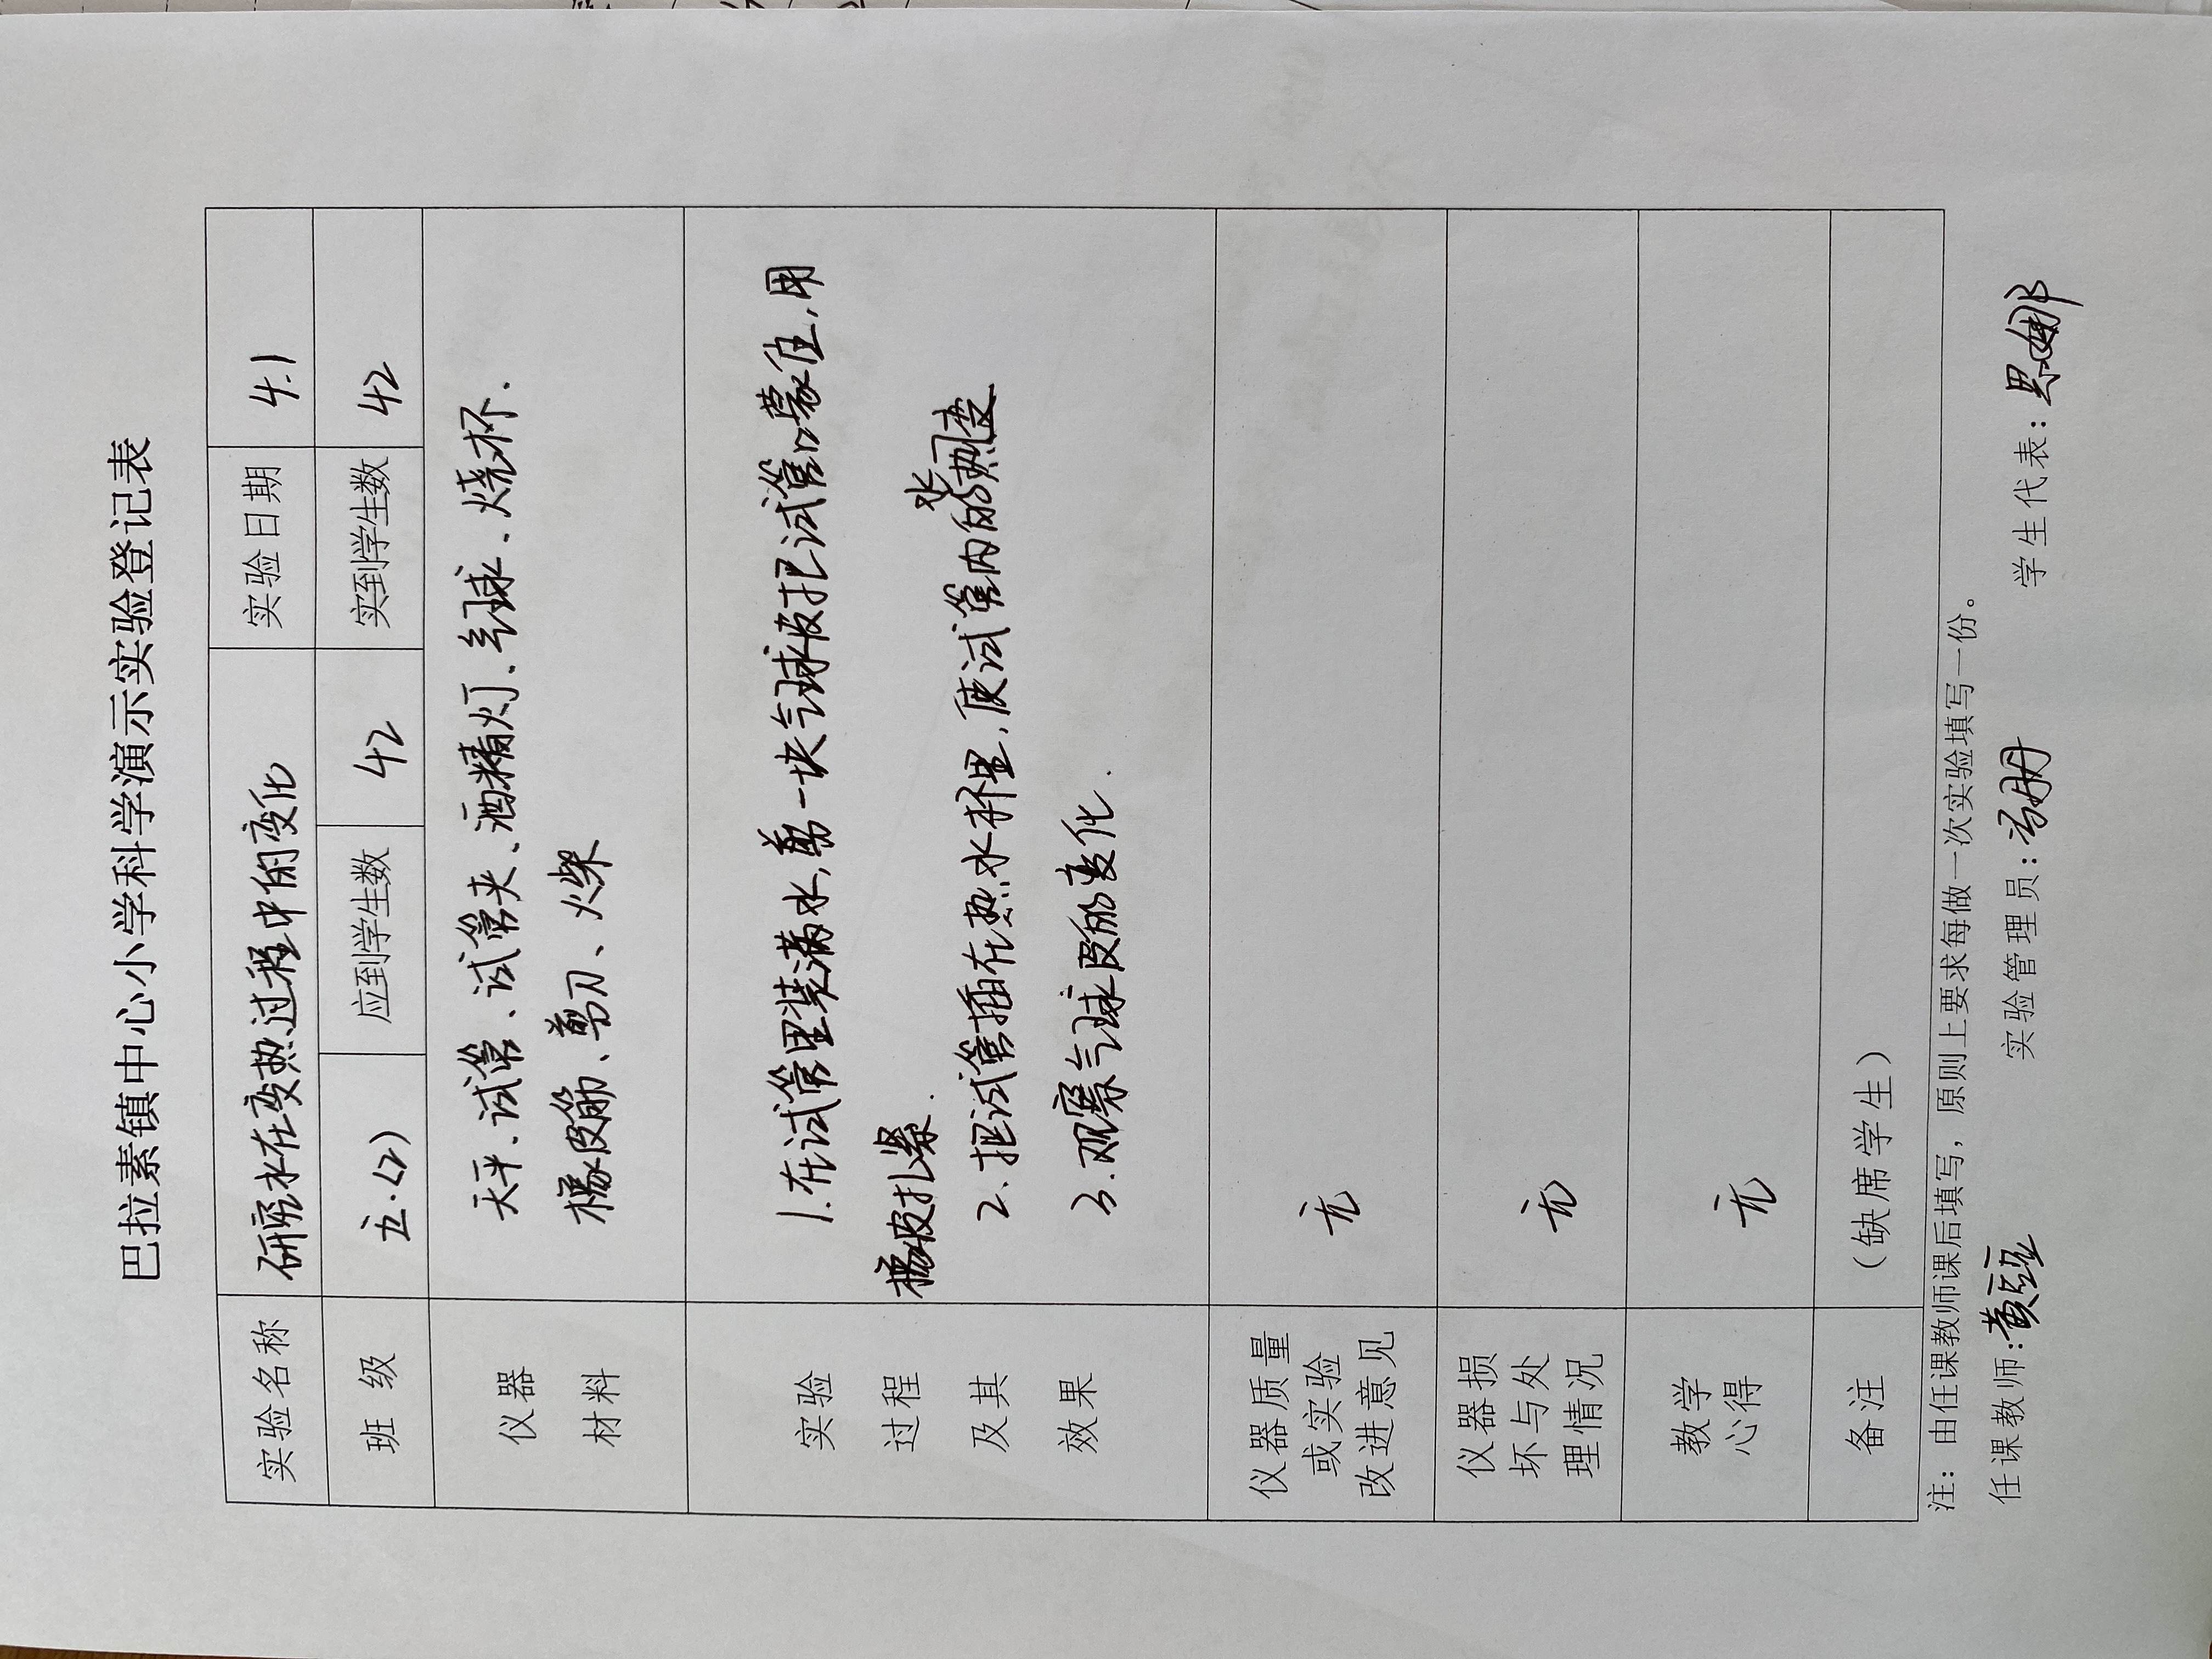 巴拉素镇中心小学科学演示实验登记表
实验名称 研究水在变热过程中的变化 实验日期 4.1
班 级 五.(2) 应到学生数 42 实到学生数 42
仪器
材料
天平、试管、试管夹、酒精灯、气球、烧杯.
橡皮筋、剪刀、火柴
实验
过程
及其
效果
1.在试管里装满水,剪一块气球皮把试管口蒙住,用
橡皮扎紧.
2、把试管插在热水杯里,使试管内的水热变
3.观察气球皮的变化.
仪器质量
或实验
改进意见
无
仪器损
坏与处
理情况
无
教学
心得
无
备注 （缺席学生）
注：由任课教师课后填写，原则上要求每做一次实验填写一份。
任课教师:黄 实验管理员: 学生代表:思娜